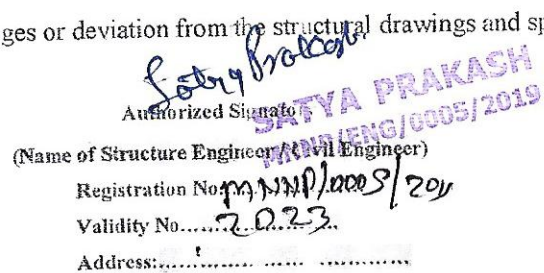 ges or deviation from the structural drawings and sp
Satya Prakash
Authorized Signato
SATYA PRAKASH
MNNP/ENG/0005/2019
(Name of Structure Engineer/Civil Engineer)
Registration No. MNNP/0005/201
Validity No......2023..
Address: